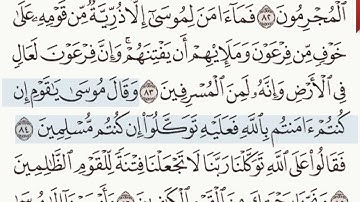 ٱلْمُجْرِمُونَ ٨٢ فَمَآ ءَامَنَ لِمُوسَىٰٓ إِلَّا ذُرِّيَّةٌ مِّن قَوْمِهِۦ عَلَىٰ
خَوْفٍ مِّن فِرْعَوْنَ وَمَلَإِيْهِمْ أَن يَفْتِنَهُمْ ۚ وَإِنَّ فِرْعَوْنَ لَعَالٍ
فِى ٱلْأَرْضِ وَإِنَّهُۥ لَمِنَ ٱلْمُسْرِفِينَ ٨٣ وَقَالَ مُوسَىٰ يَـٰقَوْمِ إِن
كُنتُمْ ءَامَنتُم بِٱللَّهِ فَعَلَيْهِ تَوَكَّلُوٓا۟ إِن كُنتُم مُّسْلِمِينَ ٨٤
فَقَالُوا۟ عَلَى ٱللَّهِ تَوَكَّلْنَا رَبَّنَا لَا تَجْعَلْنَا فِتْنَةً لِّلْقَوْمِ ٱلظَّـٰلِمِينَ